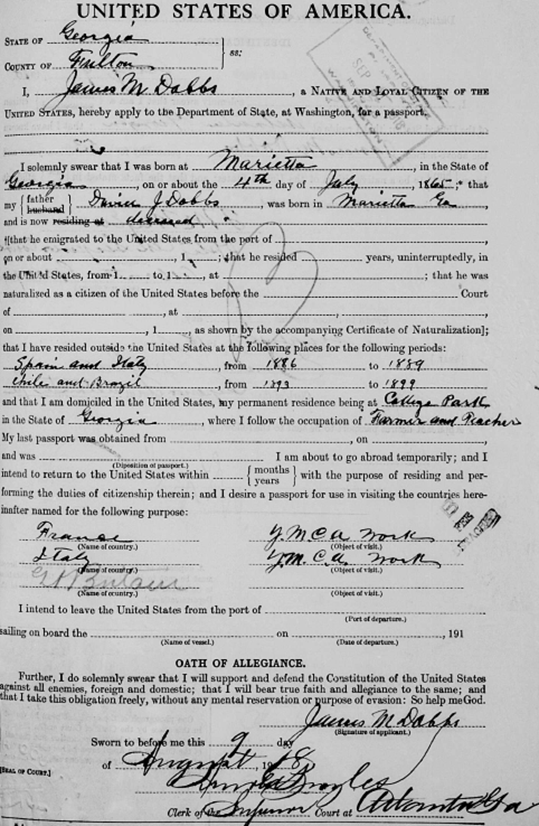 UNITED STATES OF AMERICA.
STATE OF Georgia
COUNTY OF Fulton ss:
I, James M Dobbs, a NATIVE AND LOYAL CITIZEN OF THE
UNITED STATES, hereby apply to the Department of State, at Washington, for a passport.
I solemnly swear that I was born at Marietta, in the State of
Georgia, on or about the 4th day of July, 1865; that
my { father husband } David J Dobbs, was born in Marietta Ga
and is now residing at deceased
[that he emigrated to the United States from the port of
on or about , 1 ; that he resided years, uninterruptedly, in
the United States, from 1 to 1 , at ; that he was
naturalized as a citizen of the United States before the Court
of , at ,
on , 1 , as shown by the accompanying Certificate of Naturalization];
that I have resided outside the United States at the following places for the following periods:
Spain and Italy, from 1886 to 1889
Chile and Brazil, from 1893 to 1899
and that I am domiciled in the United States, my permanent residence being at College Park
in the State of Georgia, where I follow the occupation of Farmer and Teacher
My last passport was obtained from , on
and was I am about to go abroad temporarily; and I
(Disposition of passport.)
intend to return to the United States within { months years } with the purpose of residing and per-
forming the duties of citizenship therein; and I desire a passport for use in visiting the countries here-
inafter named for the following purpose:
France Y.M.C.A. Work
(Name of country.) (Object of visit.)
Italy Y.M.C.A. Work
(Name of country.) (Object of visit.)
(Name of country.) (Object of visit.)
I intend to leave the United States from the port of
(Port of departure.)
sailing on board the on , 191
(Name of vessel.) (Date of departure.)
OATH OF ALLEGIANCE.
Further, I do solemnly swear that I will support and defend the Constitution of the United States
against all enemies, foreign and domestic; that I will bear true faith and allegiance to the same; and
that I take this obligation freely, without any mental reservation or purpose of evasion: So help me God.
James M Dobbs
(Signature of applicant.)
Sworn to before me this 9 day
of August, 1918
[SEAL OF COURT.] Broyles
Clerk of the Superior Court at Atlanta Ga